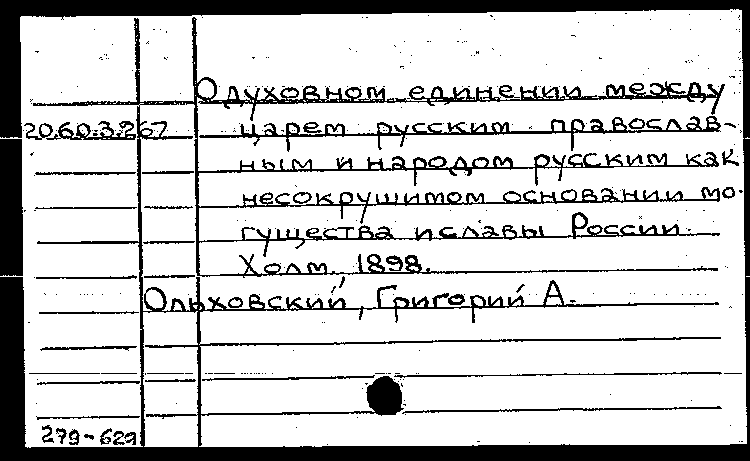 О духовном единении между
20.60.3.267 царем русским православ-
ным и народом русским как
несокрушимом основании мо-
гущества и славы России.
Холм, 1898.
Ольховский, Григорий А.
279-629